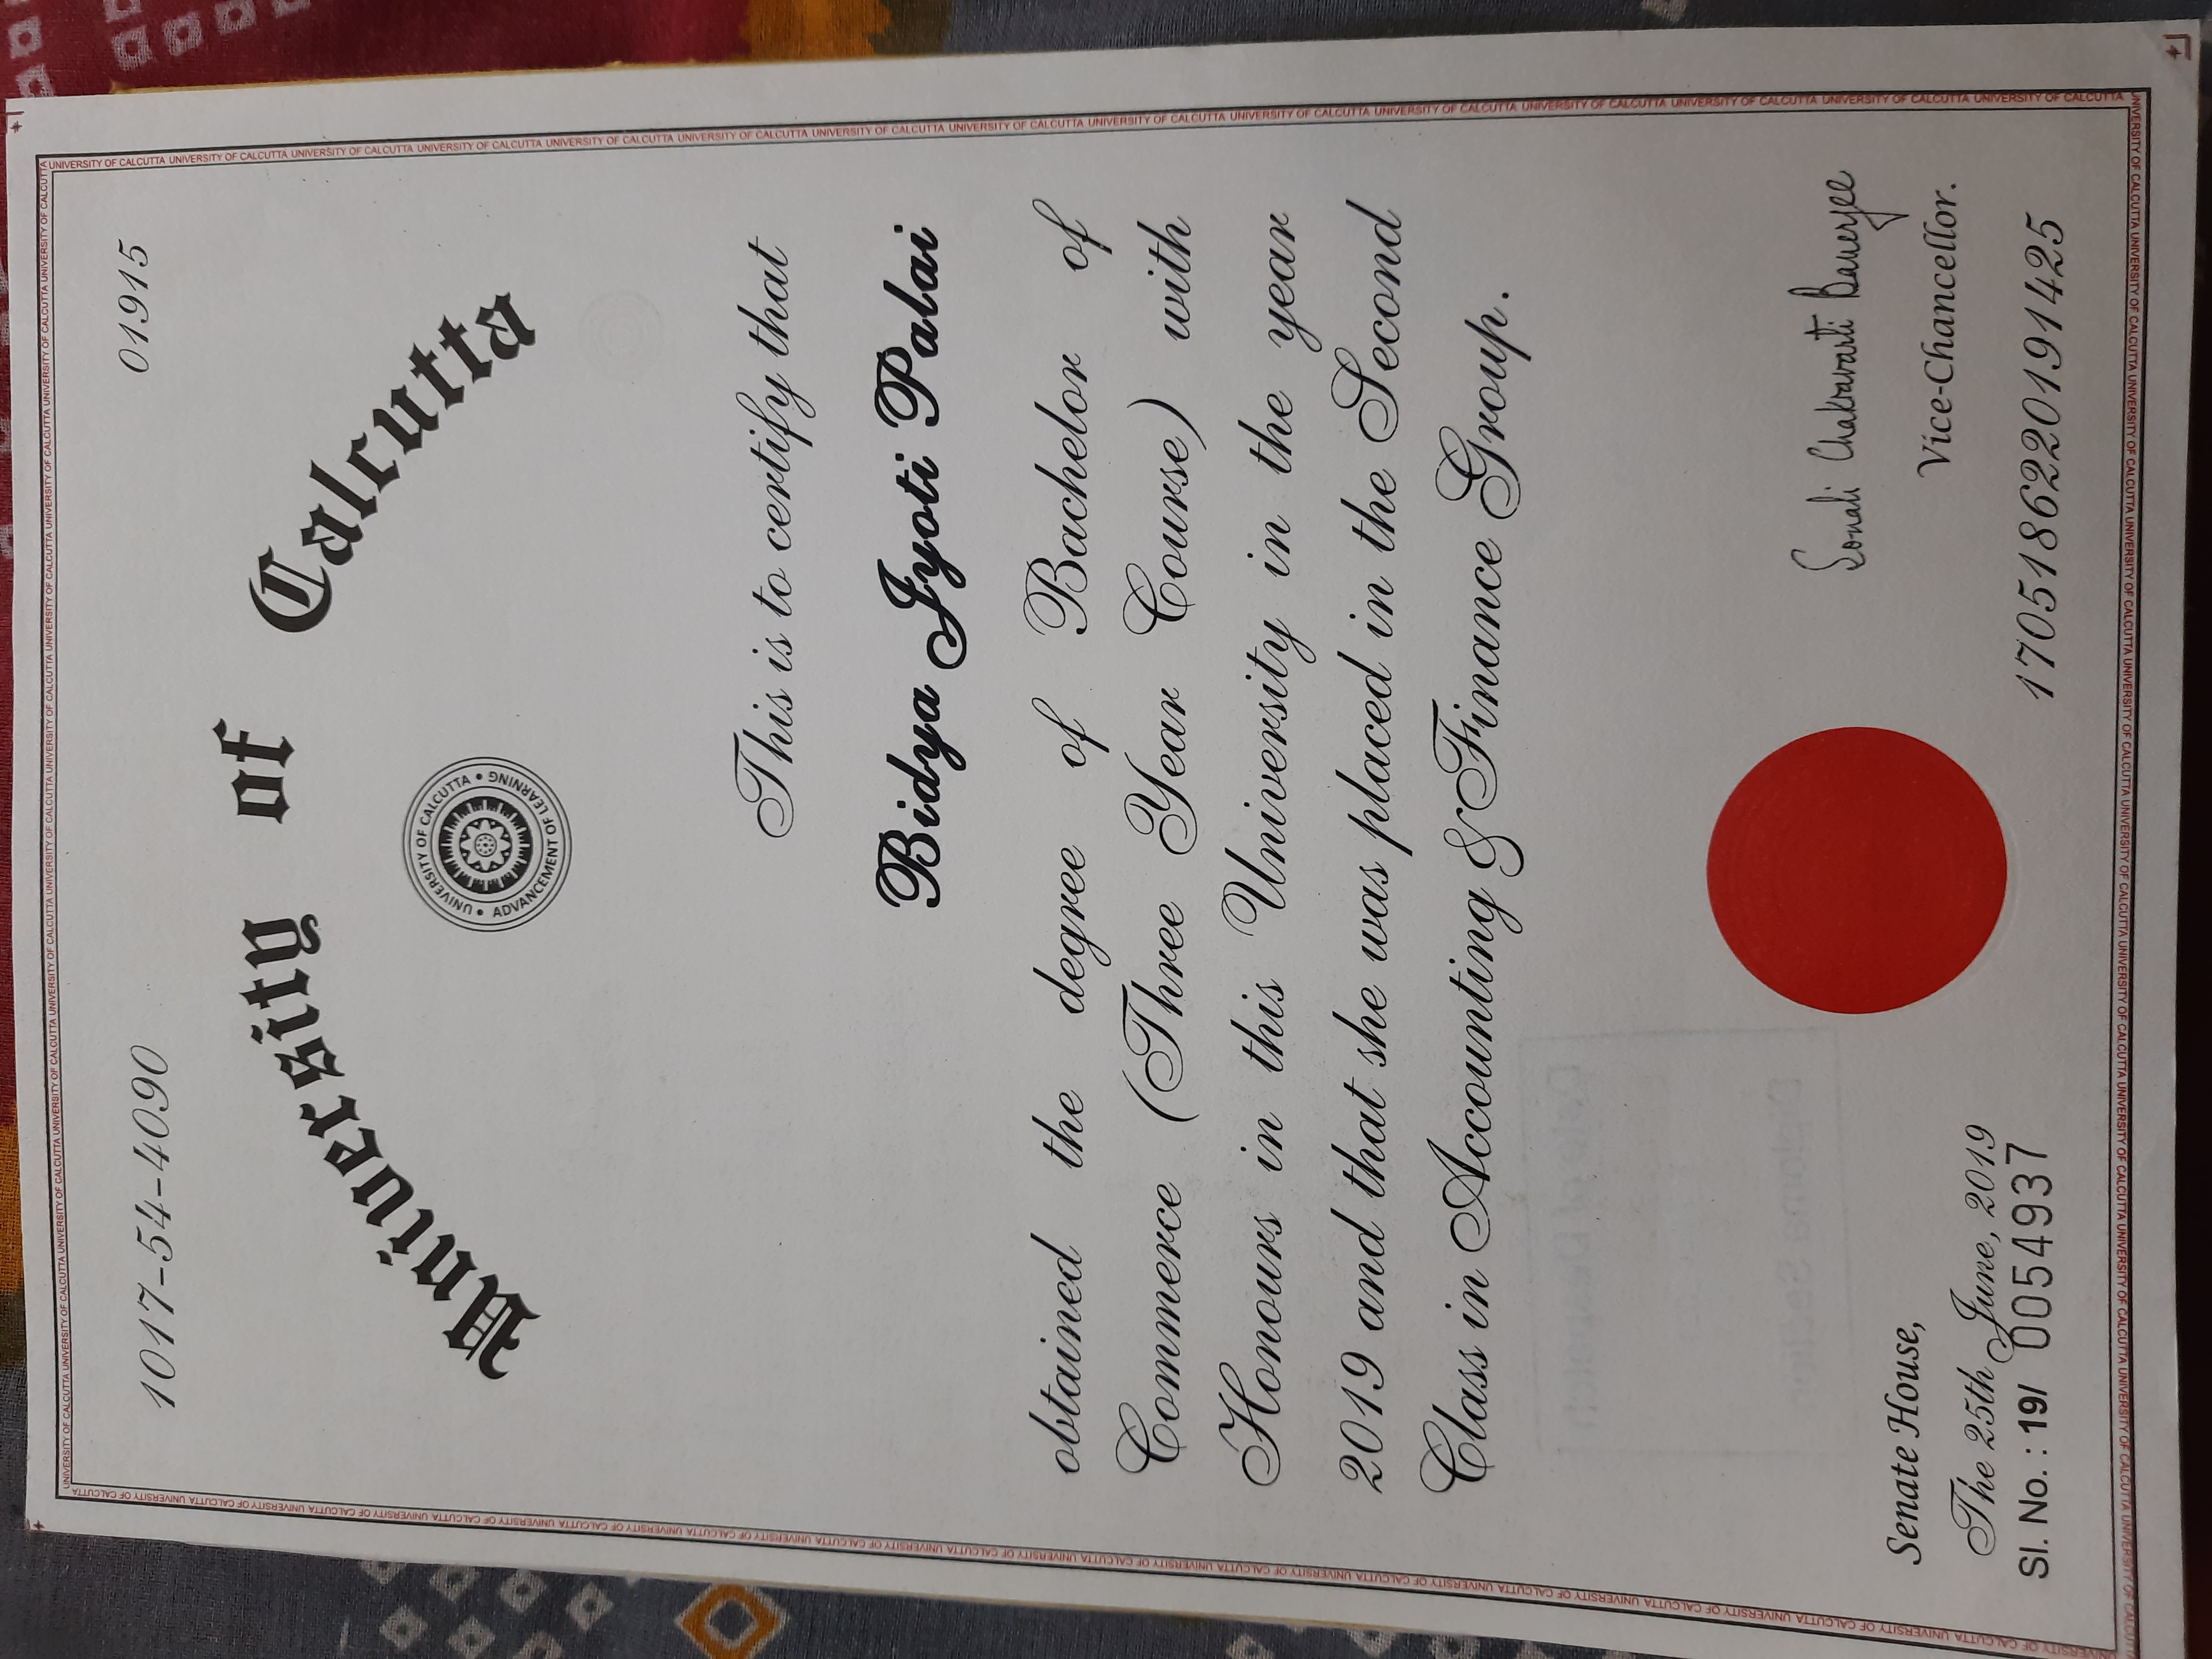 1017-54-4090 01915
University of Calcutta
UNIVERSITY OF CALCUTTA • ADVANCEMENT OF LEARNING •
This is to certify that
Bidya Jyoti Palai
obtained the degree of Bachelor of
Commerce (Three Year Course) with
Honours in this University in the year
2019 and that she was placed in the Second
Class in Accounting & Finance Group.
Sonali Chakravarti Banerjee
Senate House, Vice-Chancellor.
The 25th June, 2019
Sl. No. : 19/ 0054937 170518622019191425